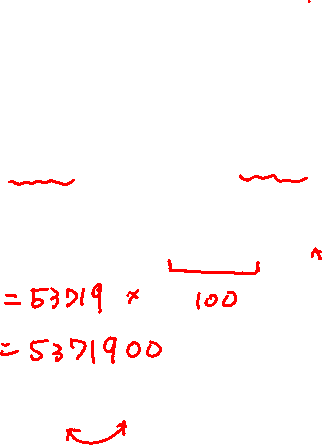 = 53719 × 100
= 5371900